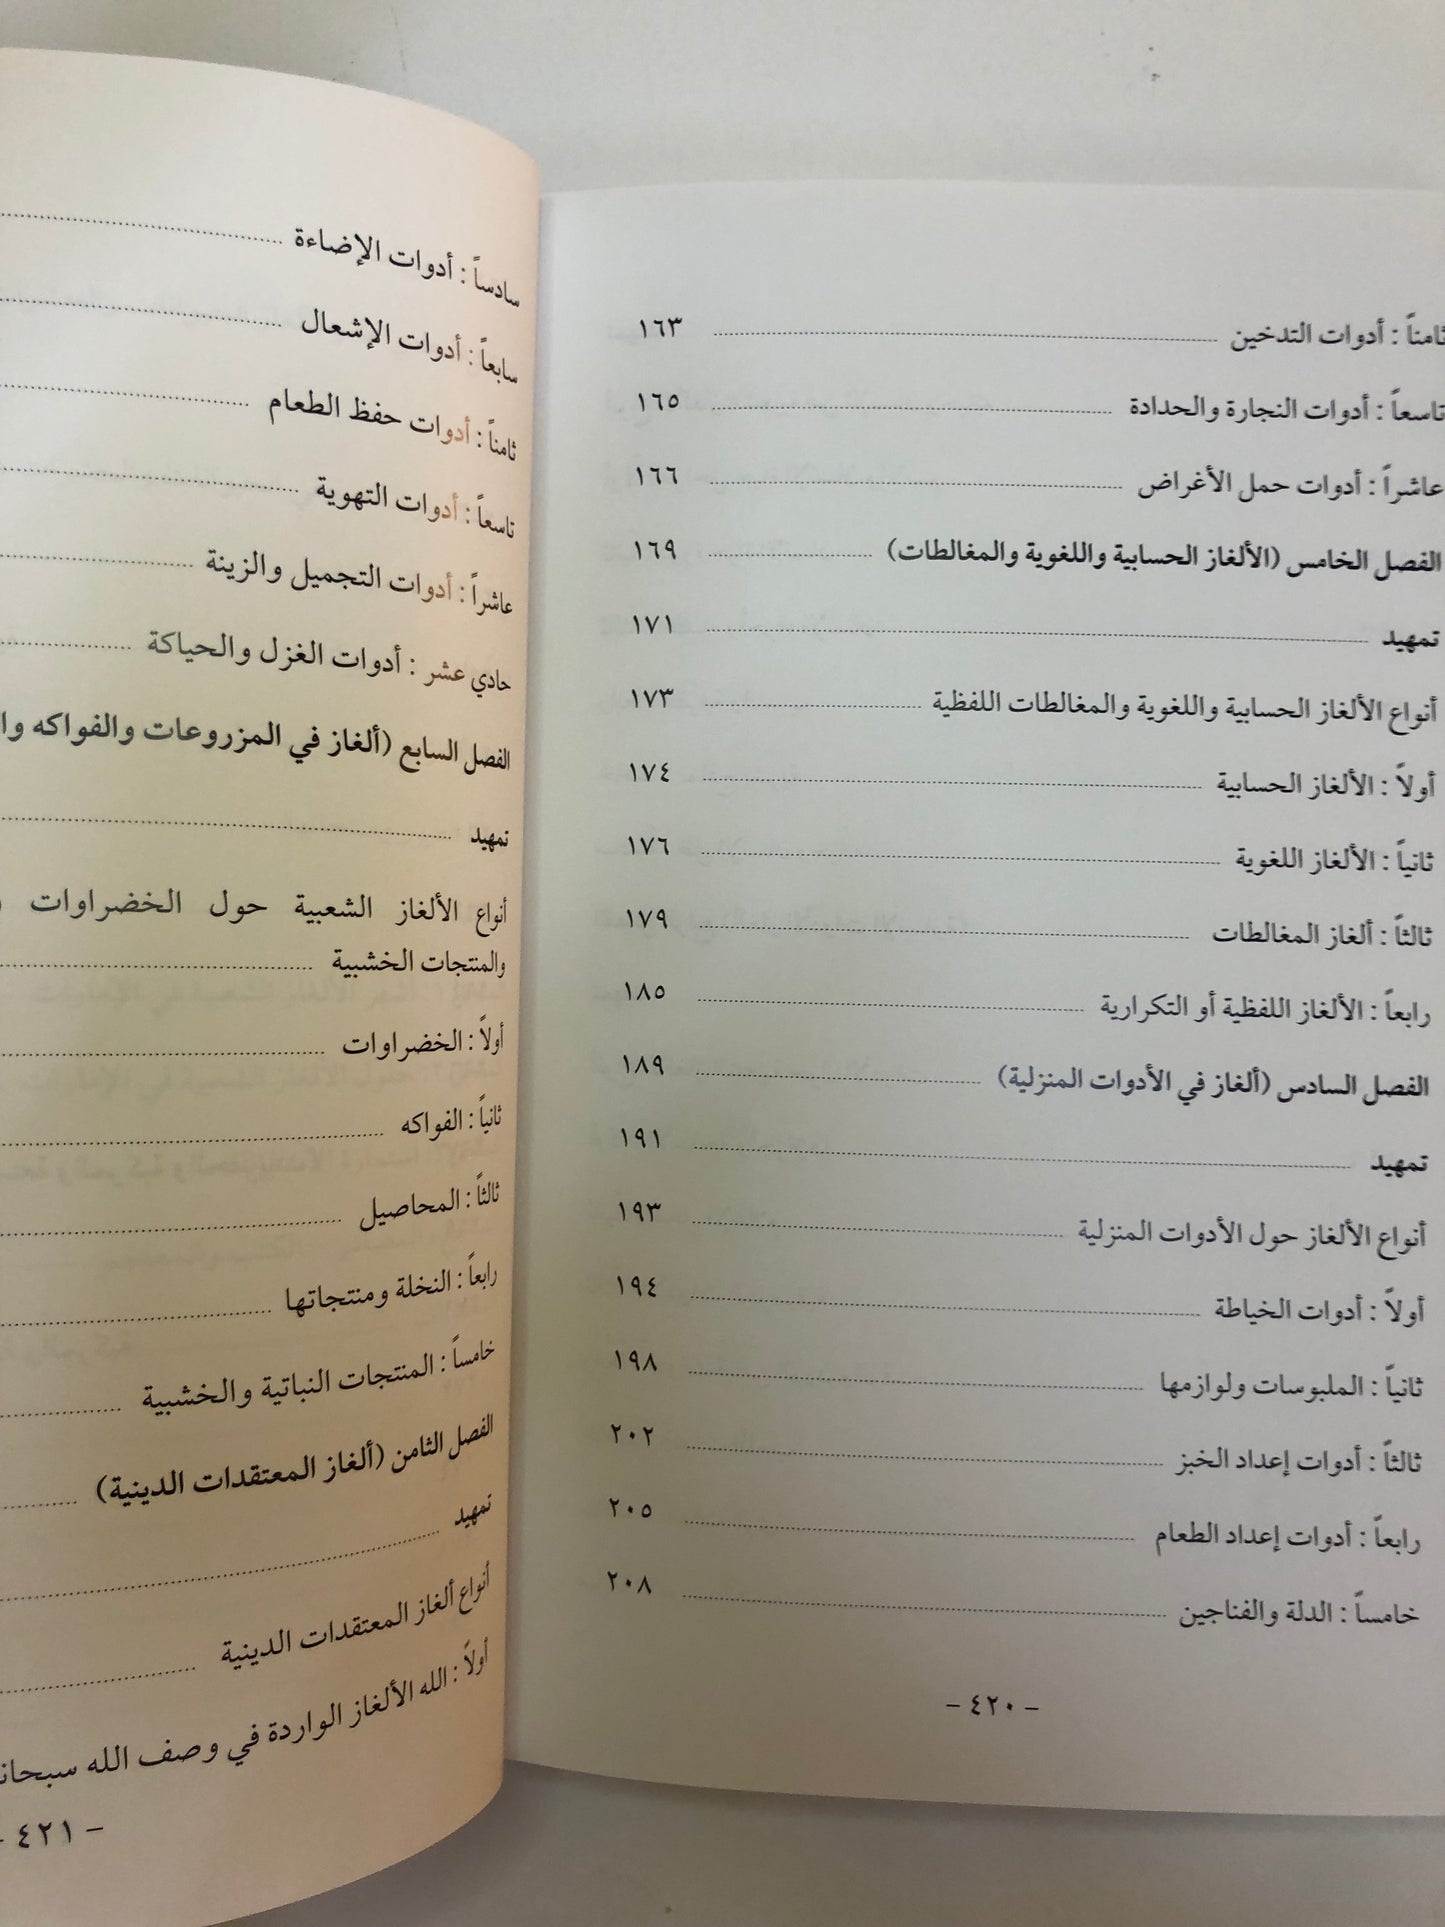 ثامناً : أدوات التدخين ........ ١٦٣
تاسعاً : أدوات النجارة والحدادة ........ ١٦٥
عاشراً : أدوات حمل الأغراض ........ ١٦٦
الفصل الخامس (الألغاز الحسابية واللغوية والمغالطات) ........ ١٦٩
تمهيد ........ ١٧١
أنواع الألغاز الحسابية واللغوية والمغالطات اللفظية ........ ١٧٣
أولاً : الألغاز الحسابية ........ ١٧٤
ثانياً : الألغاز اللغوية ........ ١٧٦
ثالثاً : ألغاز المغالطات ........ ١٧٩
رابعاً : الألغاز اللفظية أو التكرارية ........ ١٨٥
الفصل السادس (ألغاز في الأدوات المنزلية) ........ ١٨٩
تمهيد ........ ١٩١
أنواع الألغاز حول الأدوات المنزلية ........ ١٩٣
أولاً : أدوات الخياطة ........ ١٩٤
ثانياً : الملبوسات ولوازمها ........ ١٩٨
ثالثاً : أدوات إعداد الخبز ........ ٢٠٢
رابعاً : أدوات إعداد الطعام ........ ٢٠٥
خامساً : الدلة والفناجين ........ ٢٠٨
- ٤٢٠ -
سادساً : أدوات الإضاءة ........
سابعاً : أدوات الإشعال ........
ثامناً : أدوات حفظ الطعام ........
تاسعاً : أدوات التهوية ........
عاشراً : أدوات التجميل والزينة ........
حادي عشر : أدوات الغزل والحياكة ........
الفصل السابع (ألغاز في المزروعات والفواكه
تمهيد ........
أنواع الألغاز الشعبية حول الخضراوات
والمنتجات الخشبية ........
أولاً : الخضراوات ........
ثانياً : الفواكه ........
ثالثاً : المحاصيل ........
رابعاً : النخلة ومنتجاتها ........
خامساً : المنتجات النباتية والخشبية ........
الفصل الثامن (ألغاز المعتقدات الدينية) ........
تمهيد ........
أنواع ألغاز المعتقدات الدينية ........
أولاً : الله الألغاز الواردة في وصف الله
- ٤٢١ -